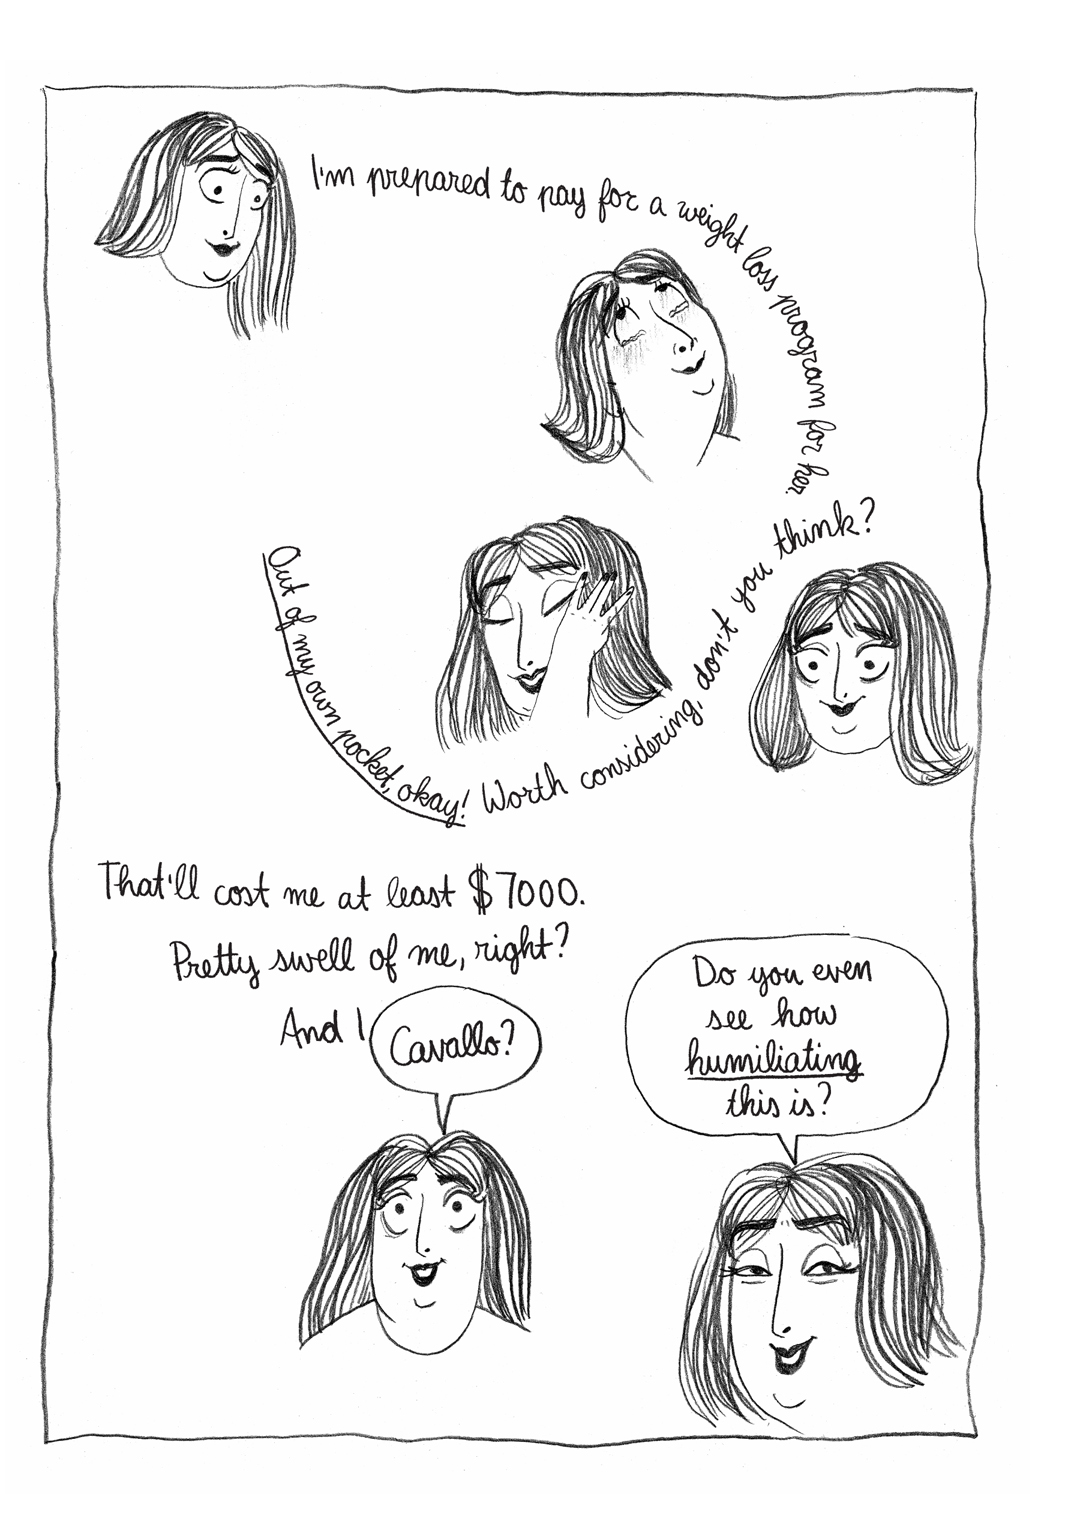 I'm prepared to pay for a weight loss program for her.
Out of my own pocket, okay! Worth considering, don't you think?
That'll cost me at least $7000.
Pretty swell of me, right?
And I
Cavallo?
Do you even
see how
humiliating
this is?